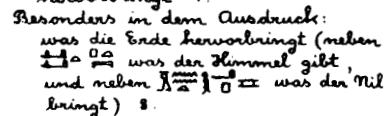 Besonders in dem Ausdruck:
was die Erde hervorbringt (neben
was der Himmel gibt,
und neben was der Nil
bringt) s.